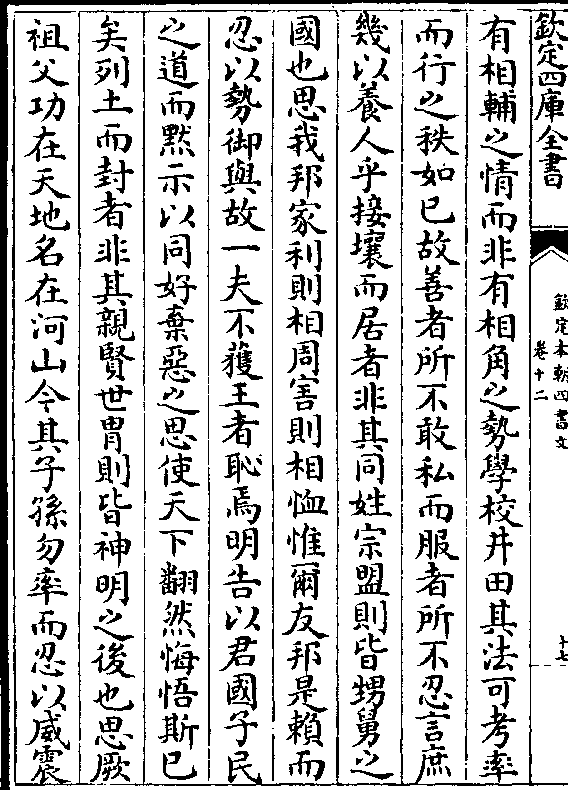 欽定四庫全書
欽定本朝四書文
卷十二
十七
有相輔之情而非有相角之勢學校井田其法可考率
而行之秩如已故善者所不敢私而服者所不忍言庶
幾以養人乎接壤而居者非其同姓宗盟則皆甥舅之
國也思我邦家利則相周害則相恤惟爾友邦是賴而
忍以勢御與故一夫不獲王者恥焉明告以君國子民
之道而默示以同好棄惡之思使天下翻然悔悟斯已
矣列土而封者非其親賢世胄則皆神明之後也思厥
祖父功在天地名在河山令其子孫勿率而忍以威震